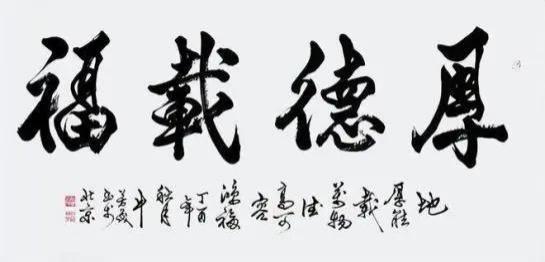 厚德載福
地
厚能
載
萬物
德
高可
容
福
丁酉
年
秋月
牛
北京